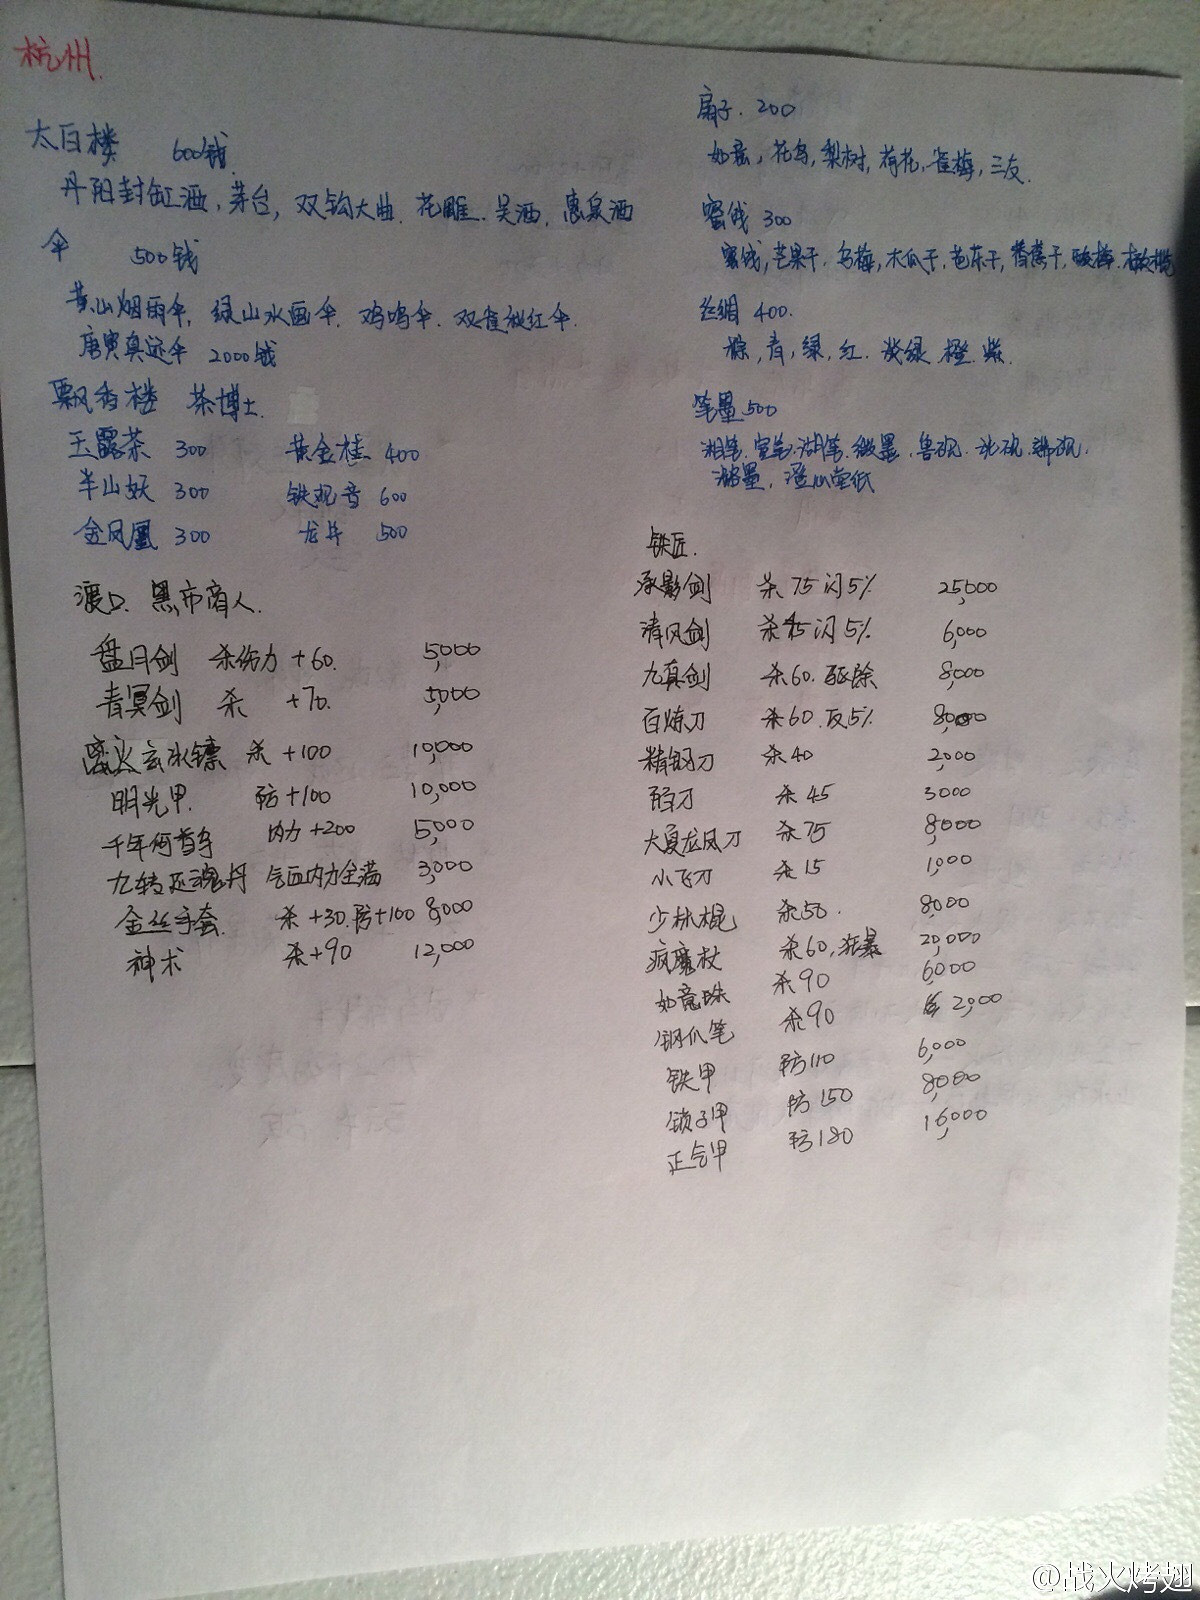 杭州.
太白楼 600钱
丹阳封缸酒,茅台,双钩大曲.花雕.吴酒.惠泉酒
伞 500钱
黄山烟雨伞,绿山水画伞.鸡鸣伞.双雀秋红伞.
唐寅真迹伞 2000钱
飘香楼 茶博士.
玉露茶 300 黄金桂 400
半山妖 300 铁观音 600
金凤凰 300 龙井 500
渡口.黑市商人.
盘月剑 杀伤力+60. 5,000
青冥剑 杀 +70. 5,000
玄冰镖 杀+100 10,000
明光甲. 防+100 10,000
千年何首乌 内力+200 5,000
九转还魂丹 气血内力全满 3,000
金丝手套. 杀+30.防+100 8,000
神术 杀+90 12,000
扇子.200
如意,花鸟,梨树,荷花,雀梅,三友.
蜜饯 300
蜜饯,芒果干.乌梅,木瓜干,芭乐干,香蕉干,酸梅.橄榄
丝绸 400.
棕,青,绿,红.浅绿.橙.紫.
笔墨500
湘笔.宣笔.湖笔.徽墨.鲁砚.洮砚.
潞墨,澄心堂纸
铁匠.
承影剑 杀75闪5% 25,000
清风剑 杀45闪5% 6,000
九真剑 杀60.驱除 8,000
百炼刀 杀60.反5% 8,000
精钢刀 杀40 2,000
杀45 3000
大夏龙凤刀 杀75 8,000
小飞刀 杀15 1,000
少林棍 杀50. 8,000
疯魔杖 杀60,狂暴 20,000
如意珠 杀90 6,000
钢爪笔 杀90 2,000
铁甲 防110 6,000
锁子甲 防150 8,000
正气甲 防180 16,000
@战火烤翅